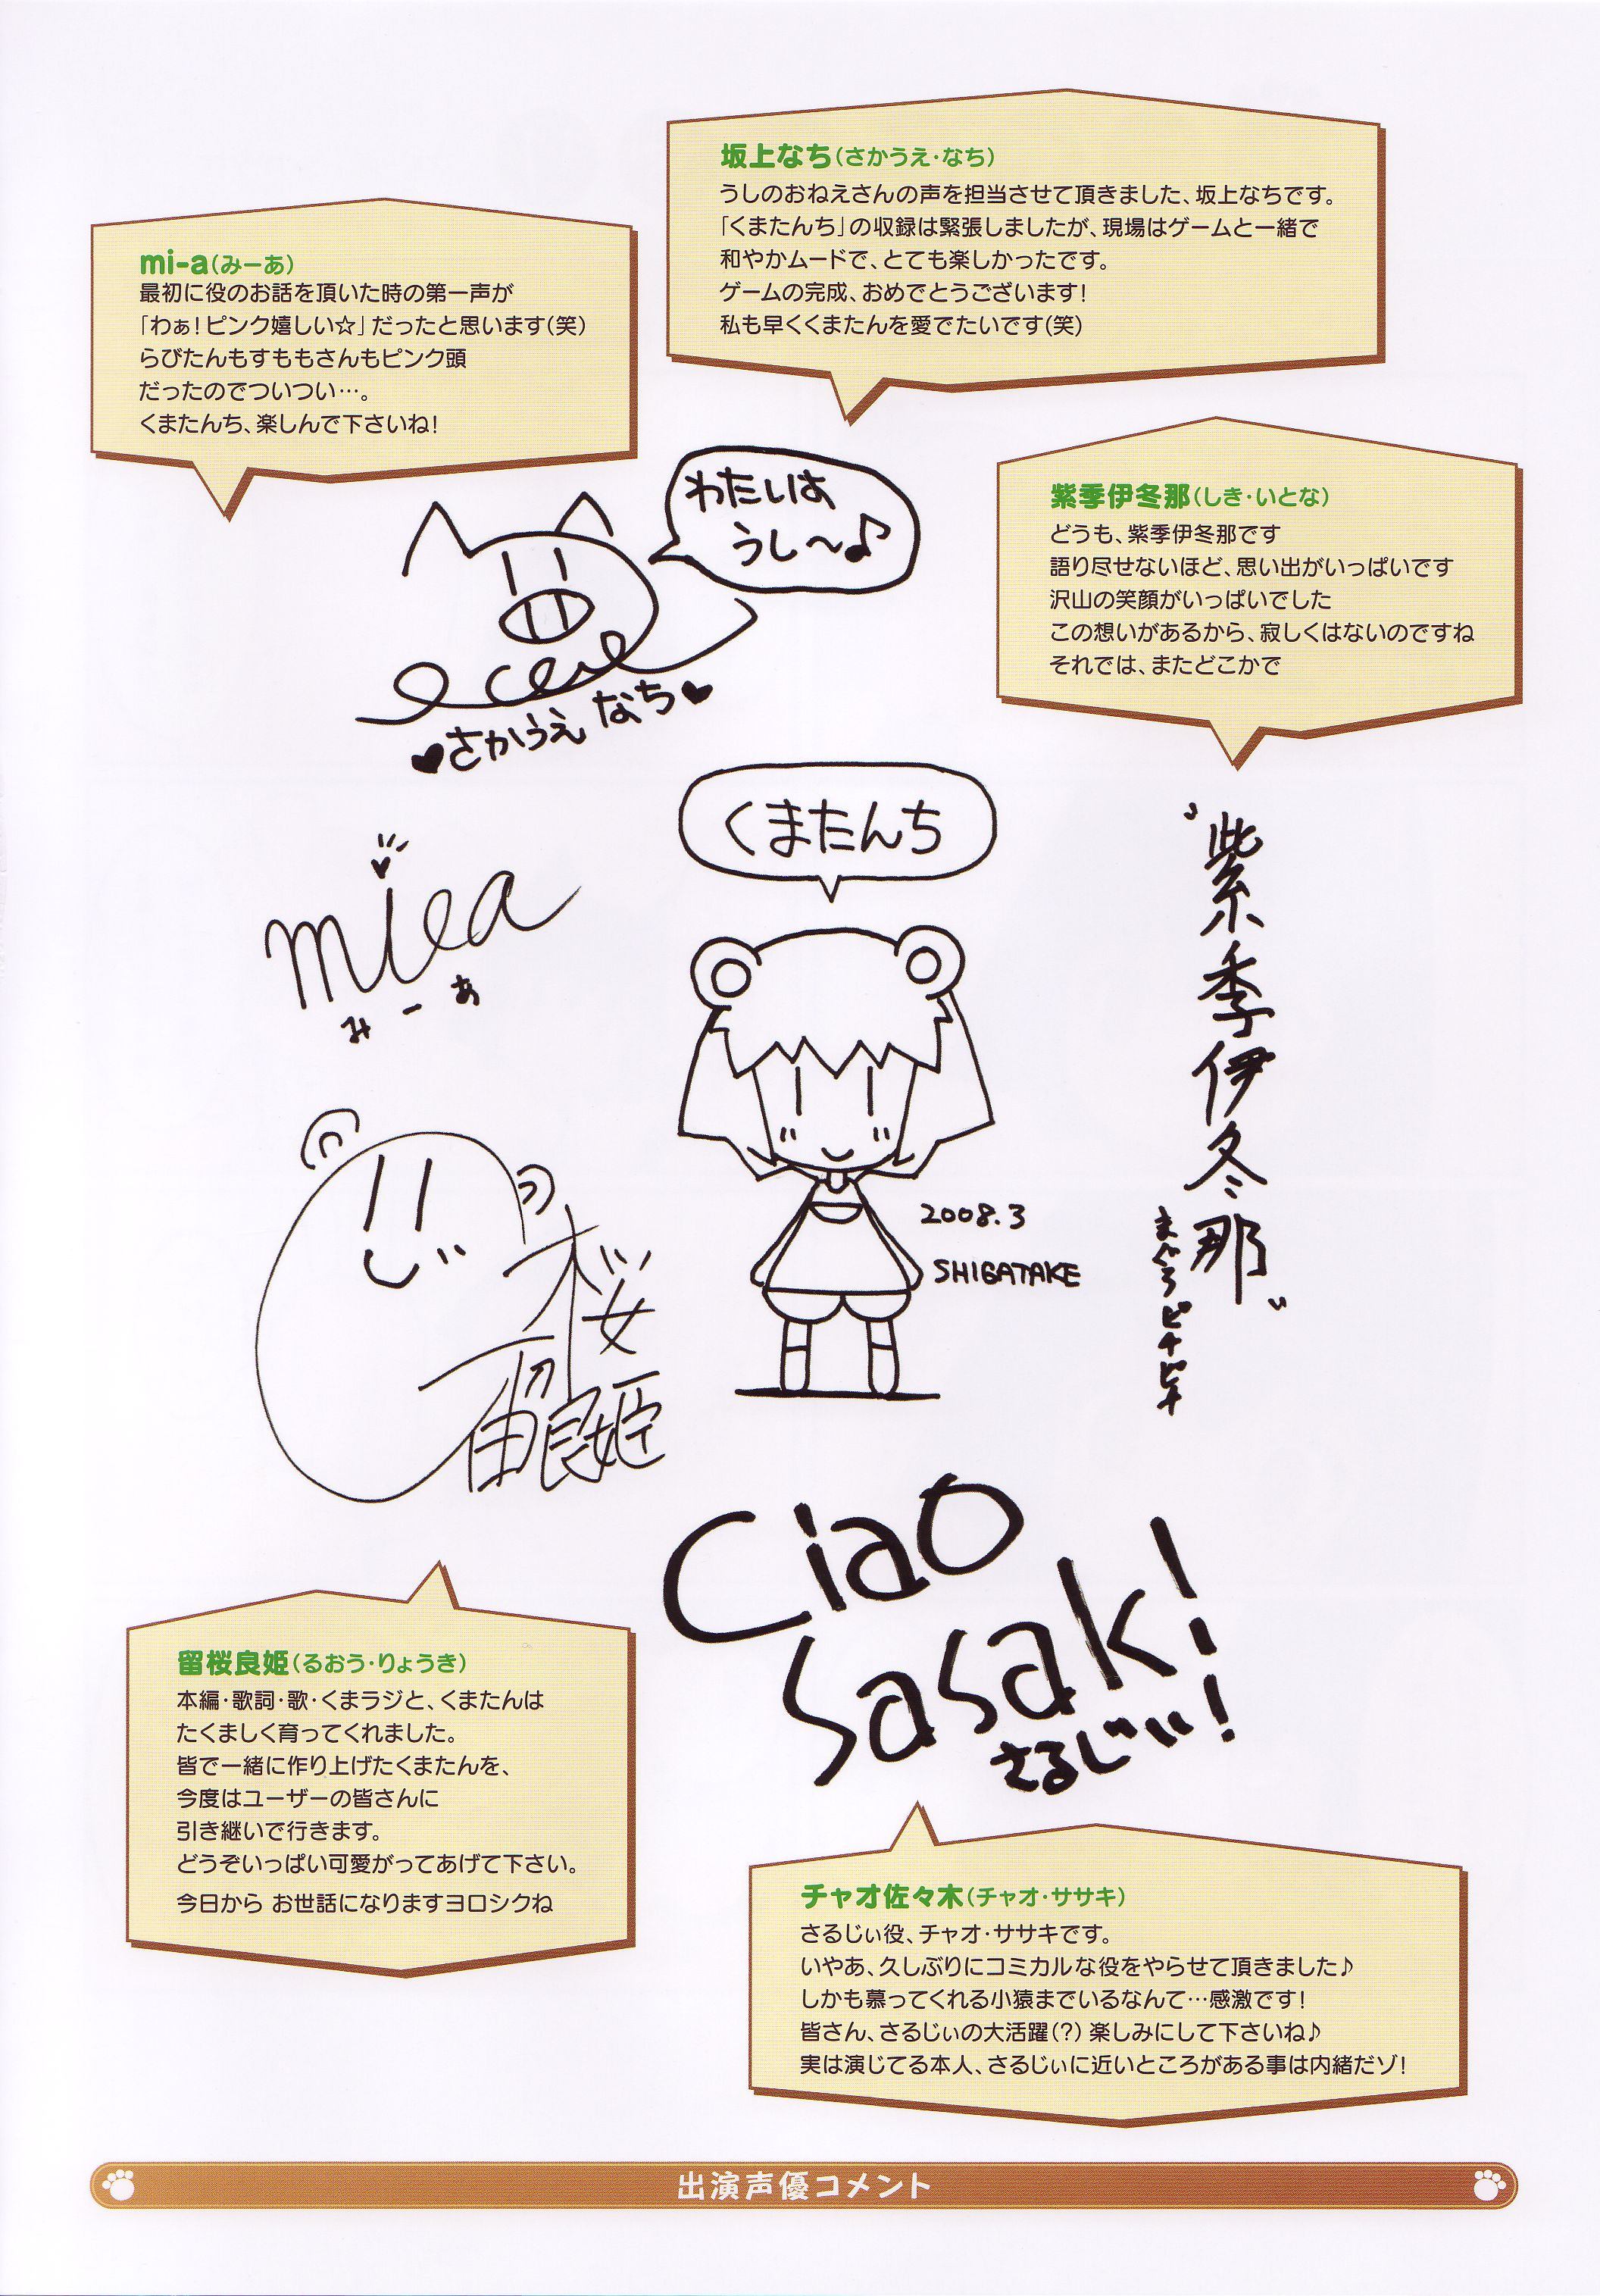 坂上なち(さかうえ・なち)
うしのおねえさんの声を担当させて頂きました、坂上なちです。
「くまたんち」の収録は緊張しましたが、現場はゲームと一緒で
和やかムードで、とても楽しかったです。
ゲームの完成、おめでとうございます!
私も早くくまたんを愛でたいです(笑)
mi-a(みーあ)
最初に役のお話を頂いた時の第一声が
「わぁ!ピンク嬉しい☆」だったと思います(笑)
らびたんもすももさんもピンク頭
だったのでついつい…。
くまたんち、楽しんで下さいね!
紫季伊冬那(しき・いとな)
どうも、紫季伊冬那です
語り尽せないほど、思い出がいっぱいです
沢山の笑顔がいっぱいでした
この想いがあるから、寂しくはないのですね
それでは、またどこかで
わたしは
うし〜♪
♥さかうえ なち♥
くまたんち
mi-a
みーあ
紫季伊冬那
まぐろピチピチ
2008.3
SHIGATAKE
留桜良姫
Ciao
Sasaki!
さるじぃ!
留桜良姫(るおう・りょうき)
本編・歌詞・歌・くまラジと、くまたんは
たくましく育ってくれました。
皆で一緒に作り上げたくまたんを、
今度はユーザーの皆さんに
引き継いで行きます。
どうぞいっぱい可愛がってあげて下さい。
今日から お世話になりますヨロシクね
チャオ佐々木(チャオ・ササキ)
さるじぃ役、チャオ・ササキです。
いやあ、久しぶりにコミカルな役をやらせて頂きました♪
しかも慕ってくれる小猿までいるなんて…感激です!
皆さん、さるじぃの大活躍(?)楽しみにして下さいね♪
実は演じてる本人、さるじぃに近いところがある事は内緒だゾ!
出演声優コメント